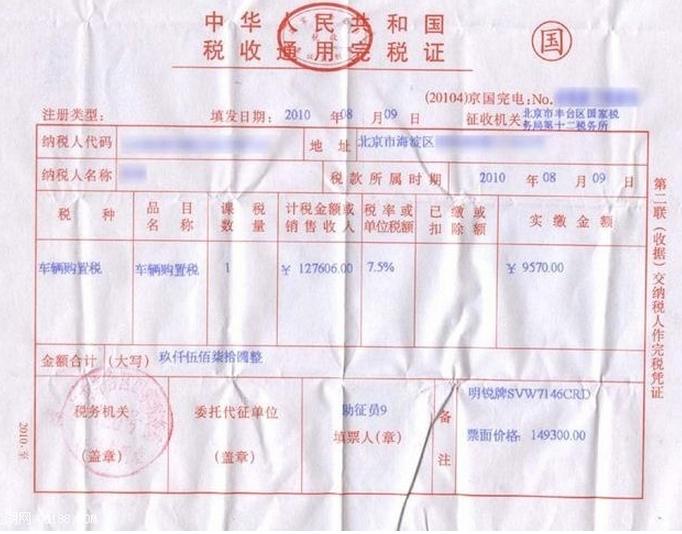 中华人民共和国
税收通用完税证
国
(20104)京国完电:No.
注册类型: 填发日期: 2010 年 08 月 09 日 征收机关 北京市丰台区国家税务局第十二税务所
纳税人代码 地 址 北京市海淀区
纳税人名称 税款所属时期 2010 年 08 月 09 日
税 种 品目名称 课税数量 计税金额或销售收入 税率或单位税额 已缴或扣除额 实缴金额
车辆购置税 车辆购置税 1 ¥ 127606.00 7.5% ¥ 9570.00
金额合计 (大写) 玖仟伍佰柒拾圆整
税务机关 (盖章) 委托代征单位 (盖章) 助征员9 填票人(章) 备注 明锐牌SVW7146CRD
票面价格: 149300.00
第二联(收据)交纳税人作完税凭证
2010.